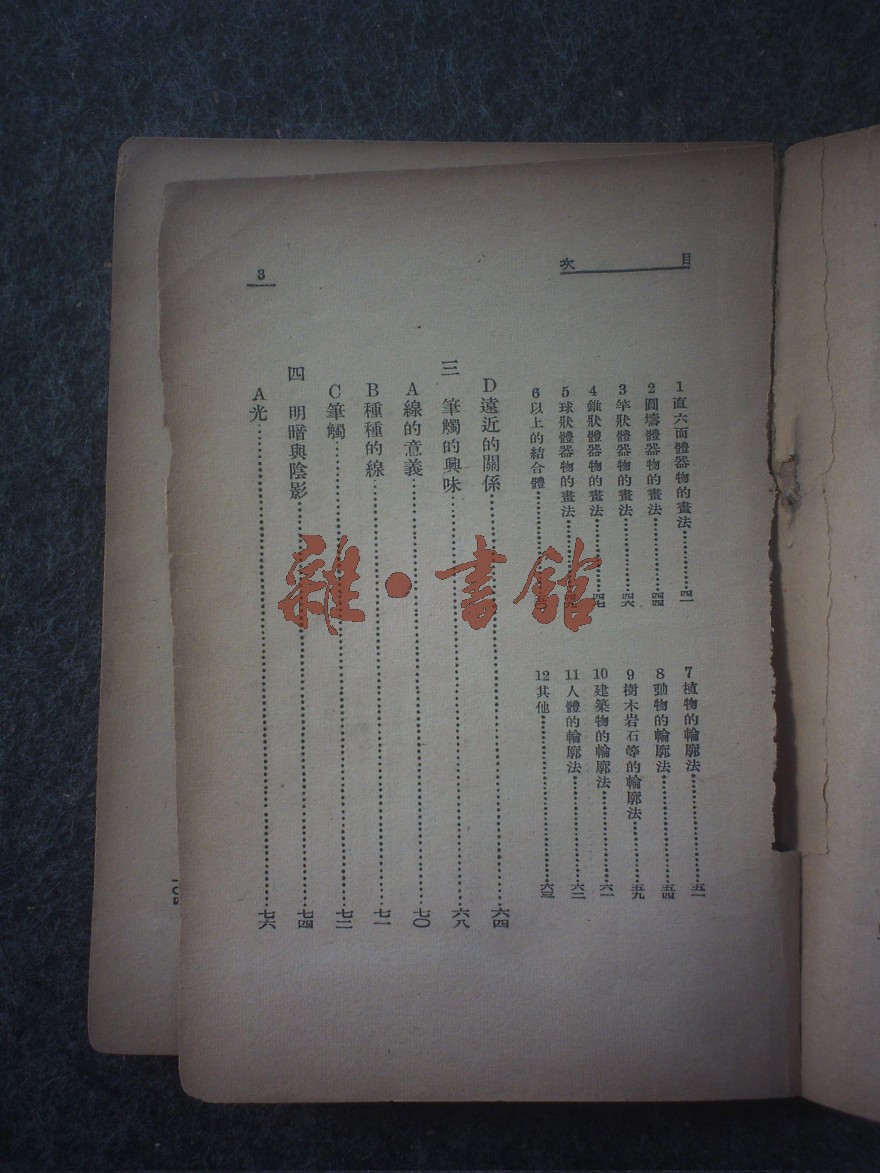 目次
1 直六面體器物的畫法…………四一
2 圓壔體器物的畫法…………四四
3 竿狀體器物的畫法…………四六
4 錐狀體器物的畫法…………四七
5 球狀體器物的畫法…………四九
6 以上的結合體…………
7 植物的輪廓法…………五一
8 動物的輪廓法…………五四
9 樹木岩石等的輪廓法…………五九
10 建築物的輪廓法…………六一
11 人體的輪廓法…………六二
12 其他…………六三
D 遠近的關係…………六四
三 筆觸的興味…………六八
A 線的意義…………七〇
B 種種的線…………七一
C 筆觸…………七二
四 明暗與陰影…………七四
A 光…………七六
3
雜·書館